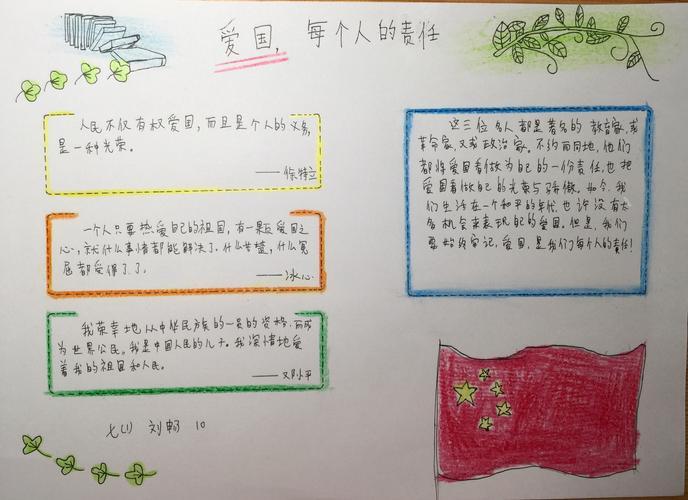 爱国，每个人的责任
人民不仅有权爱国，而且是个人的义务，
是一种光荣。
——徐特立
一个人只要热爱自己的祖国，有一颗爱国之
心，就什么事情都能解决了。什么苦楚，什么冤
屈都受得了了。
——冰心
我荣幸地从中华民族的一员的资格，而成
为世界公民。我是中国人民的儿子。我深情地爱
着我的祖国和人民。
——邓小平
七(1) 刘畅 10
这三位名人都是著名的教育家，或
革命家，又或政治家。不约而同地，他们
都将爱国看做为自己的一份责任，也把
爱国看做自己的光荣与骄傲。如今，我
们生活在一个和平的年代，也许没有太
多机会来表现自己的爱国。但是，我们
要始终牢记，爱国，是我们每个人的责任！